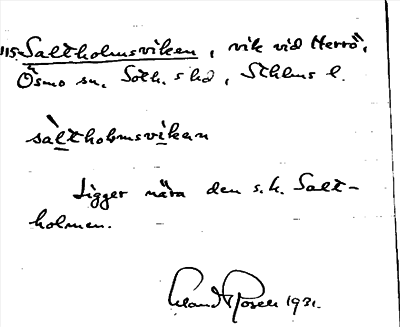 115. Saltholmsviken, vik vid Herrö,
Ösmo sn, Soth. s hd, Sthlms l.
sàltholmsvikan
Ligger nära den s.k. Salt-
holmen.
Erland Rosell 1931.